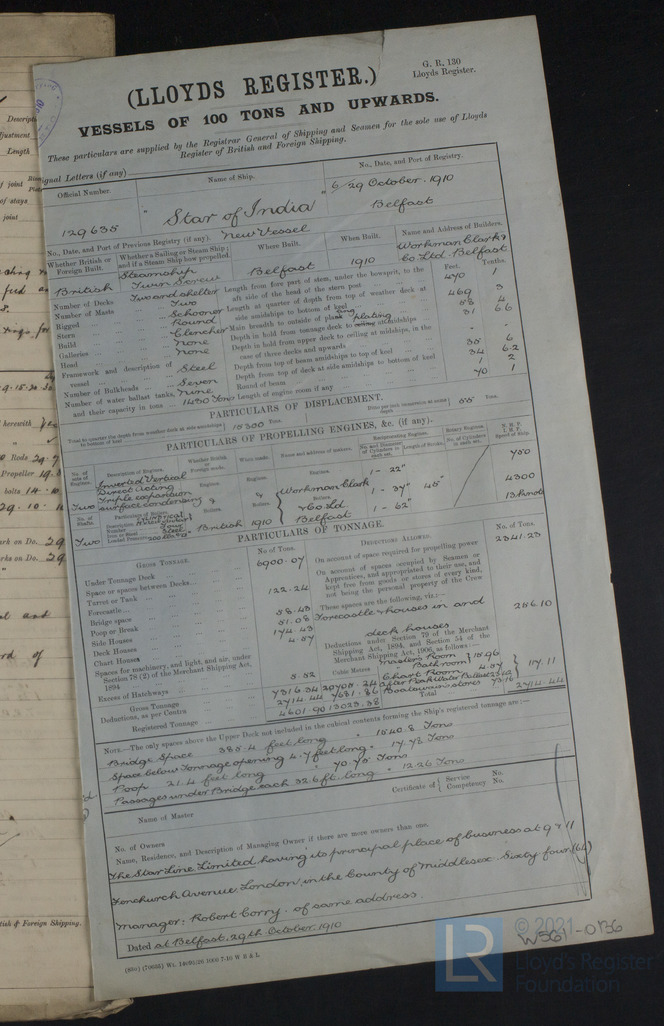 G. R. 130
Lloyds Register.
(LLOYDS REGISTER.)
VESSELS OF 100 TONS AND UPWARDS.
These particulars are supplied by the Registrar General of Shipping and Seamen for the sole use of Lloyds
Register of British and Foreign Shipping.
Signal Letters (if any)
Official Number.
Name of Ship.
No., Date, and Port of Registry.
129635
" Star of India "
6/29 October. 1910
Belfast
No., Date, and Port of Previous Registry (if any). New Vessel
Whether British or Foreign Built.
Whether a Sailing or Steam Ship; and if a Steam Ship how propelled.
Where Built.
When Built.
Name and Address of Builders.
British
Steamship
Twin Screw
Belfast
1910
Workman Clark &
Co Ltd. Belfast
Feet. Tenths.
Number of Decks Two and shelter
Number of Masts Two
Rigged Schooner
Stern Round
Build Clencher
Galleries None
Head None
Framework and description of vessel Steel
Number of Bulkheads Seven
Number of water ballast tanks, None
and their capacity in tons 1430 Tons
Length from fore part of stem, under the bowsprit, to the aft side of the head of the stern post 470 1
Length at quarter of depth from top of weather deck at side amidships to bottom of keel 469 3
Main breadth to outside of plating 58 4
Depth in hold from tonnage deck to ceiling at midships 31 6.6
Depth in hold from upper deck to ceiling at midships, in the case of three decks and upwards " "
Depth from top of beam amidships to top of keel 35 6
Depth from top of deck at side amidships to bottom of keel 34 6.2
Round of beam 1 2
Length of engine room if any 40 1
PARTICULARS OF DISPLACEMENT.
Total to quarter the depth from weather deck at side amidships to bottom of keel 15300 Tons.
Ditto per inch immersion at same depth 55 Tons.
PARTICULARS OF PROPELLING ENGINES, &c. (if any).
No. of sets of Engines.
Description of Engines.
Whether British or Foreign made.
When made.
Name and address of makers.
Reciprocating Engines.
No. and Diameter of Cylinders in each set.
Length of Stroke.
Rotary Engines.
No. of Cylinders in each set.
N.H.P.
I.H.P.
Speed of Ship.
Two
Inverted Vertical
Direct Acting
Triple expansion
surface condensing
Engines.
Engines.
Engines.
1 - 22"
1 - 37"
1 - 62"
45"
750
4300
13 knots
No. of Shafts.
Two
Particulars of Boilers.
Description
Number Four
Iron or Steel Steel
Loaded Pressure
Boilers.
British
Boilers.
1910
Boilers.
Workman Clark
& Co Ltd
Belfast
PARTICULARS OF TONNAGE.
GROSS TONNAGE.
No. of Tons.
DEDUCTIONS ALLOWED.
No. of Tons.
Under Tonnage Deck 6900.07
Space or spaces between Decks
Turret or Trunk 122.24
Forecastle 58.43
Bridge space 51.08
Poop or Break 174.43
Side Houses 4.57
Deck Houses
Chart Houses
Spaces for machinery, and light, and air, under Section 78 (2) of the Merchant Shipping Act, 1894
Excess of Hatchways 5.52
Gross Tonnage 7316.34 20705.24
Deductions, as per Contra 2714.44 7681.86
Registered Tonnage 4601.90 13023.38
Cubic Metres
On account of space required for propelling power 2341.23
On account of spaces occupied by Seamen or Apprentices, and appropriated to their use, and kept free from goods or stores of every kind, not being the personal property of the Crew
These spaces are the following, viz:—
Forecastle & houses in and
deck houses
256.10
Deductions under Section 79 of the Merchant Shipping Act, 1894, and Section 54 of the Merchant Shipping Act, 1906, as follows:—
Master's Room 15.96
Bathroom
Chart Room 4.57
After Peak Water Ballast
Boatswain's stores
117.11
Total 2714.44
NOTE.—The only spaces above the Upper Deck not included in the cubical contents forming the Ship's registered tonnage are:—
Bridge Space 385.4 feet long " 1540.8 Tons
Space below Tonnage opening 4.7 feet long " 17.72 Tons
Poop 21.4 feet long " 70.75 Tons
Passages under Bridge each 32.6 ft. long " 12.26 Tons
Name of Master
Certificate of { Service No.
Competency No.
No. of Owners
Name, Residence, and Description of Managing Owner if there are more owners than one.
The Star Line Limited, having its principal place of business at 9 & 11
Fenchurch Avenue London, in the County of Middlesex. Sixty four (64)
Manager: Robert Corry. of same address.
Dated at Belfast, 29th October. 1910
© 2021
W561-0136
LR
Lloyd's Register
Foundation